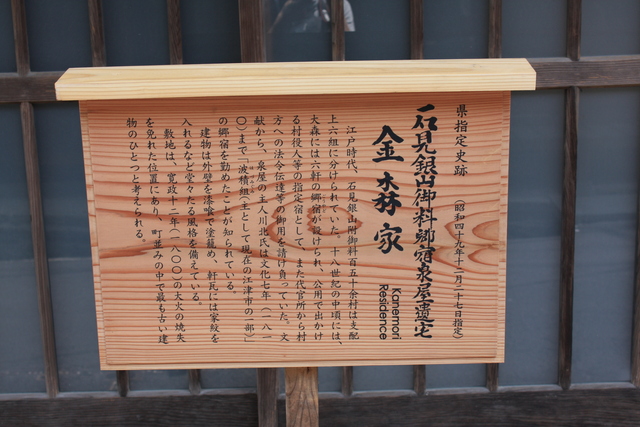 県指定史跡
(昭和四十九年十二月二十七日指定)
石見銀山御料郷宿泉屋遺宅
金森家
Kanemori
Residence
江戸時代、石見銀山附御料百五十余村は支配
上六組に分けられていた。十八世紀の中頃には、
大森には六軒の郷宿が設けられ、公用で出かけ
る村役人等の指定宿として、また代官所から村
方への法令伝達等の御用を請け負っていた。文
献から、泉屋の主人川北氏は文化七年(一八一
〇)まで「波積組(主として現在の江津市の一部)」
の郷宿を勤めたことが知られている。
建物は外壁を漆喰で塗籠め、軒瓦には家紋を
入れるなど堂々たる風格を備えている。
敷地は、寛政十二年(一八〇〇)の大火の焼失
を免れた位置にあり、町並みの中で最も古い建
物のひとつと考えられる。